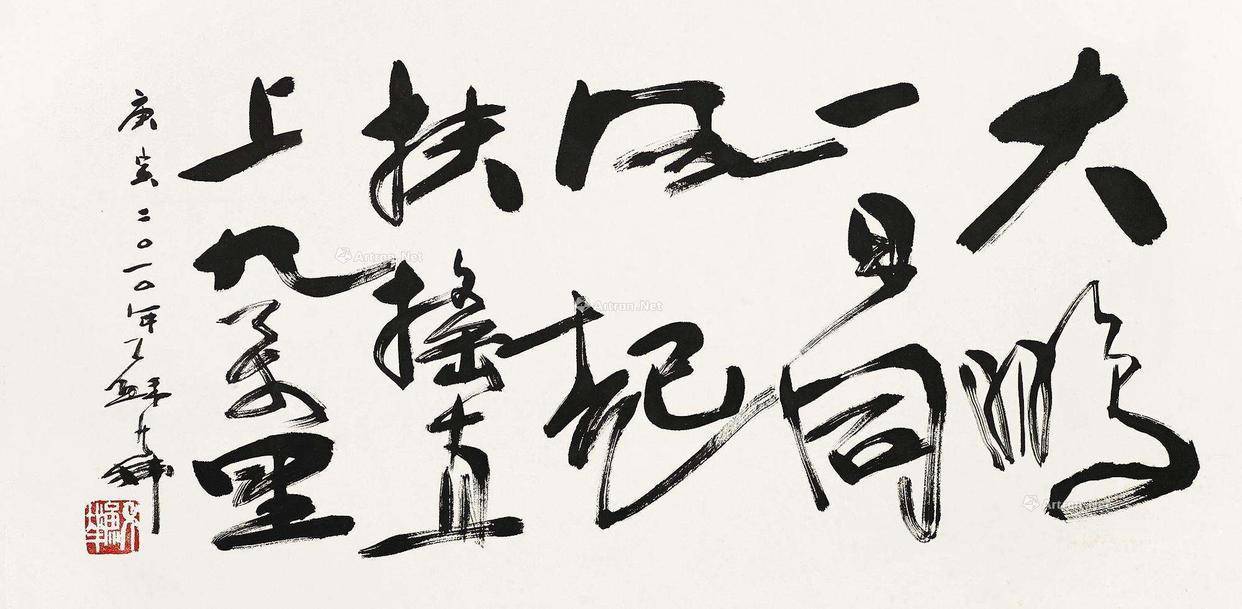 大鵬
一日同
风起
扶搖直
上九萬里
庚寅二〇一〇年
Artron.Net
Artron.Net
Artron.Net